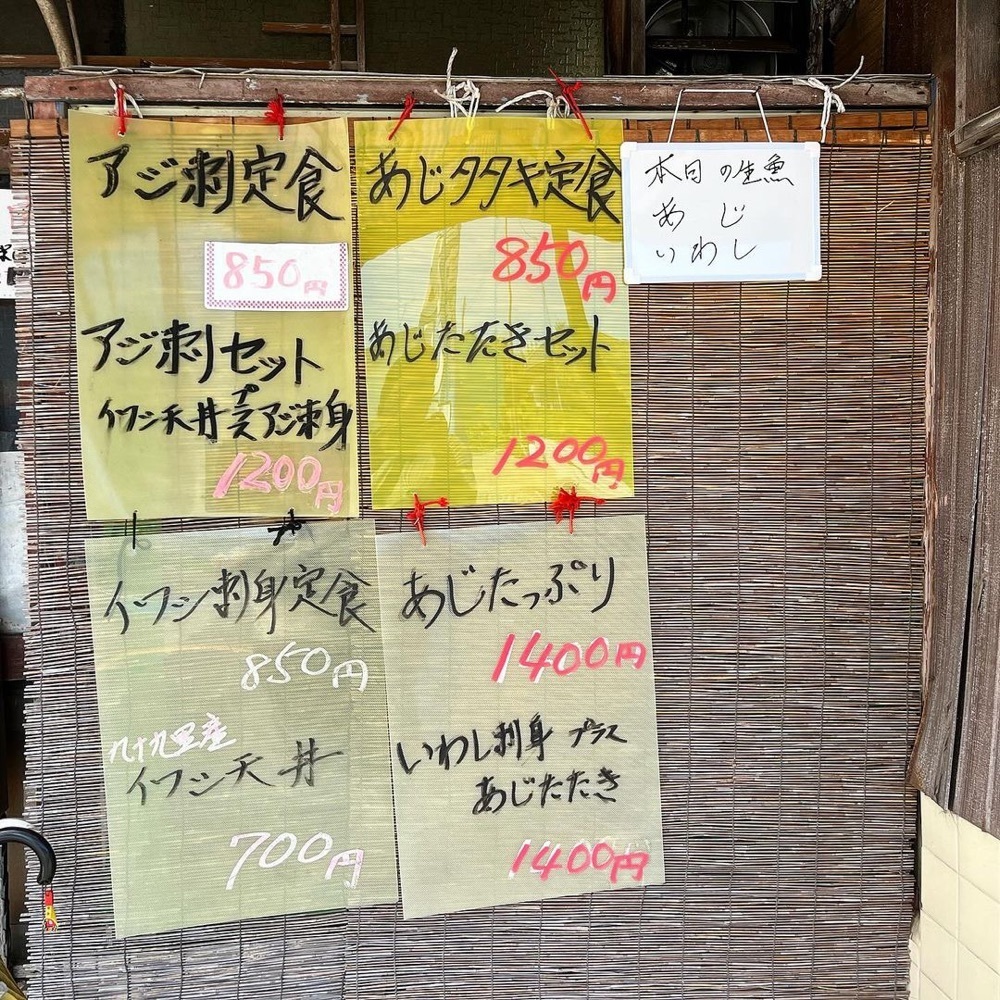 アジ刺定食
850円
アジ刺セット
イワシ天丼プラスアジ刺身
1200円
あじタタキ定食
850円
あじたたきセット
1200円
本日の生魚
あじ
いわし
イワシ刺身定食
850円
九十九里産
イワシ天丼
700円
あじたっぷり
1400円
いわし刺身プラス
あじたたき
1400円